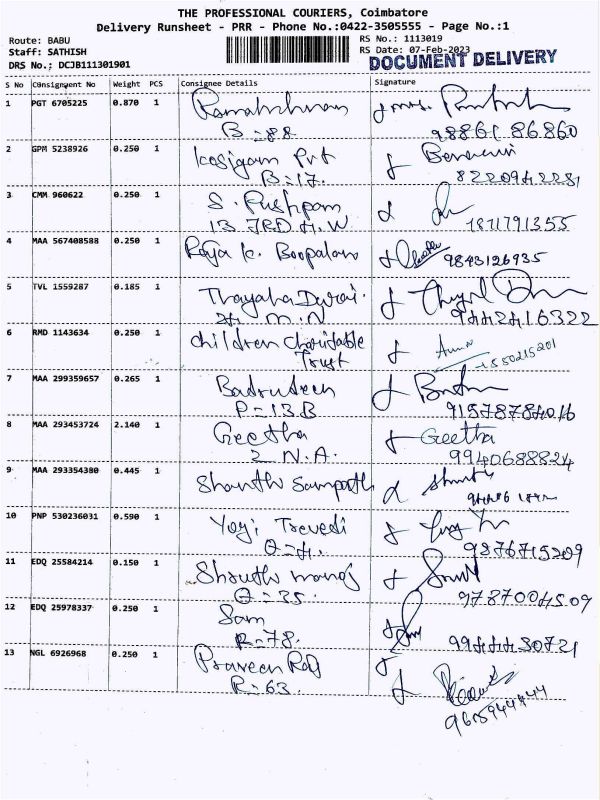 THE PROFESSIONAL COURIERS, Coimbatore
Delivery Runsheet - PRR - Phone No.:0422-3505555 - Page No.:1
Route: BABU
Staff: SATHISH
DRS No.: DCJB111301901
RS No.: 1113019
RS Date: 07-Feb-2023
DOCUMENT DELIVERY
S No Consignment No Weight PCS Consignee Details Signature
1 PGT 6705225 0.870 1
B = 88 98861 86860
2 GPM 5238926 0.250 1 Pvt
B = 17. 8220942281
3 CMM 960622 0.250 1 S. Pushpam
13 1811791355
4 MAA 567408588 0.250 1 Raja k. Boopalan 9843126935
5 TVL 1559287 0.185 1
M.N 9442416322
6 RMD 1143634 0.250 1 Children Charitable
Trust
7 MAA 299359657 0.265 1
P = 13.B
8 MAA 293453724 2.140 1 Geetha Geetha
2 N.A. 9940688824
9 MAA 293354380 0.445 1 Shanthi Sampath
10 PNP 530236031 0.590 1 Yogi Trevedi
9876715209
11 EDQ 25584214 0.150 1
Q = 35. 9787004509
12 EDQ 25978337 0.250 1 Sam
R = 78. 9944430721
13 NGL 6926968 0.250 1 Praveen Raj
R = 63.